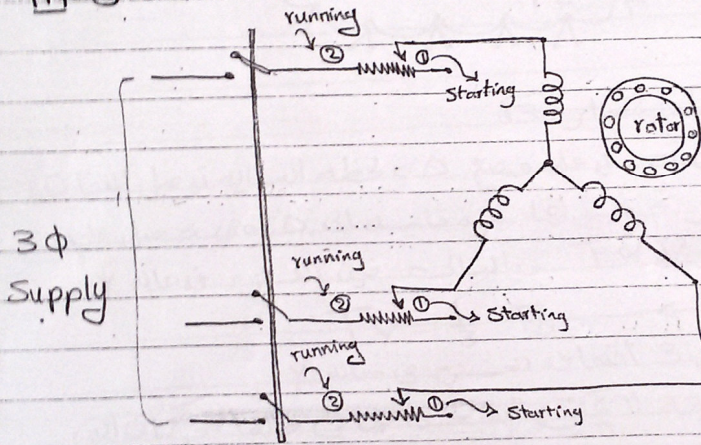 running
② ①
Starting
rotor
3Φ
Supply
running
② ①
Starting
running
② ①
Starting